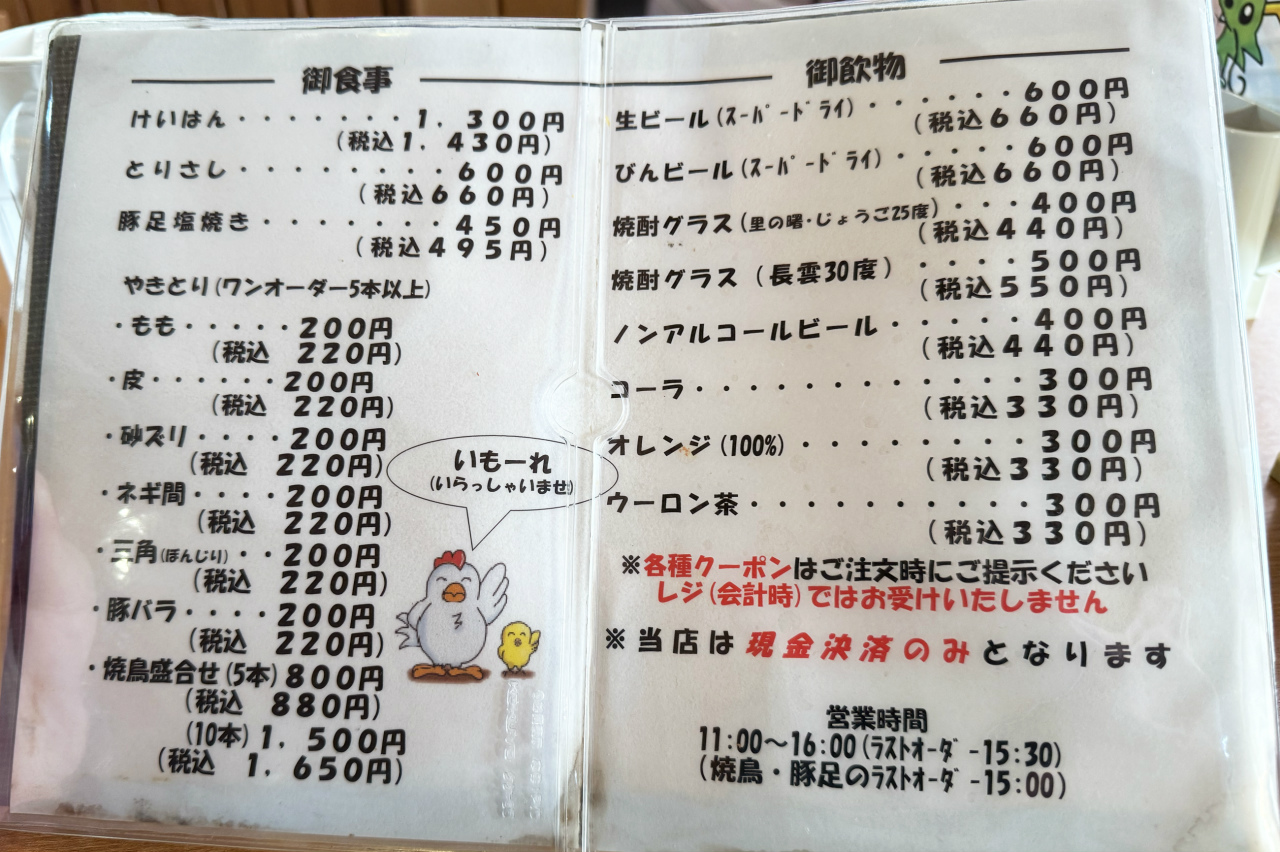 御食事
けいはん・・・・・・・・1,300円
(税込1,430円)
とりさし・・・・・・・・・600円
(税込660円)
豚足塩焼き・・・・・・・450円
(税込495円)
やきとり(ワンオーダー5本以上)
・もも・・・・・200円
(税込 220円)
・皮・・・・・・200円
(税込 220円)
・砂ズリ・・・・200円
(税込 220円)
・ネギ間・・・・200円
(税込 220円)
・三角(ぼんじり)・・200円
(税込 220円)
・豚バラ・・・・200円
(税込 220円)
・焼鳥盛合せ(5本)800円
(税込 880円)
(10本)1,500円
(税込 1,650円)
いもーれ
(いらっしゃいませ)
御飲物
生ビール(スーパードライ)・・・・・・600円
(税込660円)
びんビール(スーパードライ)・・・・・600円
(税込660円)
焼酎グラス(里の曙・じょうご25度)・・・400円
(税込440円)
焼酎グラス(長雲30度)・・・・・500円
(税込550円)
ノンアルコールビール・・・・・・400円
(税込440円)
コーラ・・・・・・・・・・・・・300円
(税込330円)
オレンジ(100%)・・・・・・・・・300円
(税込330円)
ウーロン茶・・・・・・・・・・・300円
(税込330円)
※各種クーポンはご注文時にご提示ください
レジ(会計時)ではお受けいたしません
※当店は現金決済のみとなります
営業時間
11:00～16:00(ラストオーダー15:30)
(焼鳥・豚足のラストオーダー15:00)